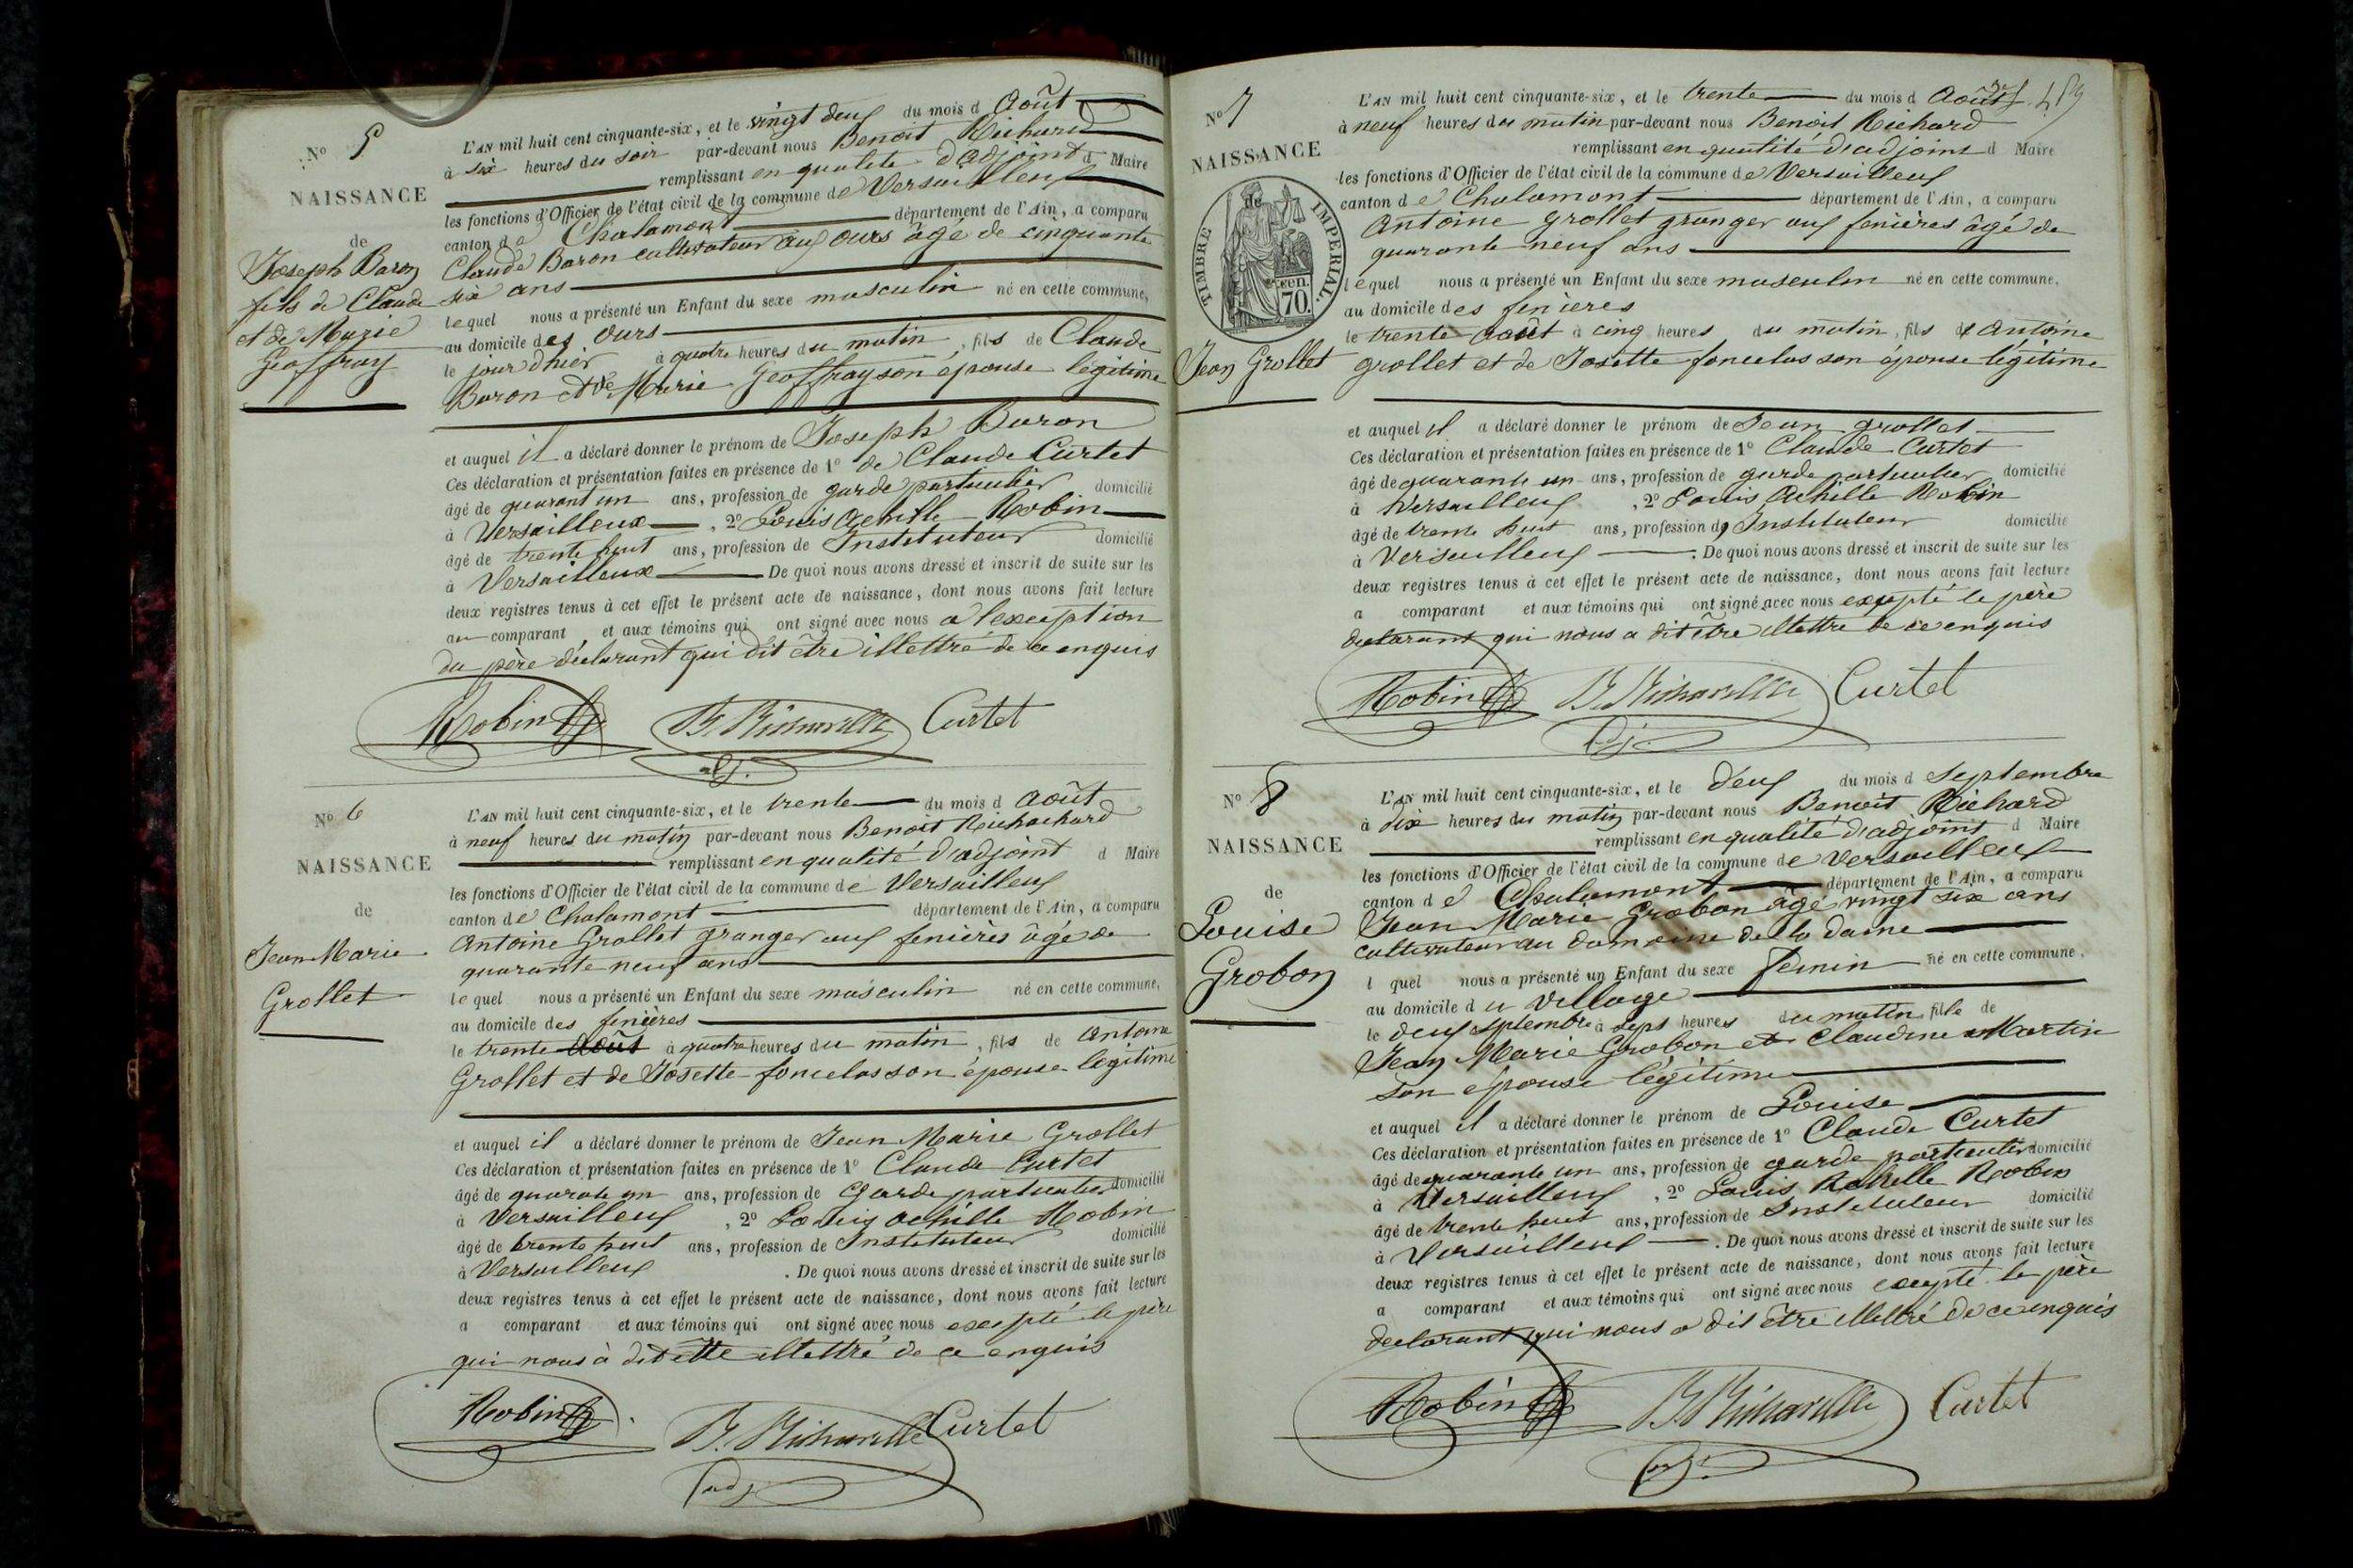 No 5
NAISSANCE
de
Joseph Baron
fils de Claude
et de Marie
Geoffray
L'AN mil huit cent cinquante-six, et le vingt deux du mois d Août
à six heures du soir par-devant nous Benoit Richard
remplissant en qualité d'adjoint d Maire
les fonctions d'Officier de l'état civil de la commune de Versailleux
canton de Chalamont département de l'Ain, a comparu
Claude Baron cultivateur aux ours âgé de cinquante
six ans
lequel nous a présenté un Enfant du sexe masculin né en cette commune,
au domicile des Ours
le jour d'hier à quatre heures du matin, fils de Claude
Baron et de Marie Geoffray son épouse légitime
et auquel il a déclaré donner le prénom de Joseph Baron
Ces déclaration et présentation faites en présence de 1º de Claude Curtet
âgé de quarant un ans, profession de garde particulier domicilié
à Versailleux, 2º Louis Achille Robin
âgé de trente huit ans, profession de Instituteur domicilié
à Versailleux De quoi nous avons dressé et inscrit de suite sur les
deux registres tenus à cet effet le présent acte de naissance, dont nous avons fait lecture
au comparant et aux témoins qui ont signé avec nous a l'exception
du père déclarant qui dit être illettré de ce enquis
Robin B. Richard Curtet
adj.
No 6
NAISSANCE
de
Jean Marie
Grollet
L'AN mil huit cent cinquante-six, et le trente du mois d Août
à neuf heures du matin par-devant nous Benoit Richachard
remplissant en qualité d'adjoint d Maire
les fonctions d'Officier de l'état civil de la commune de Versailleux
canton de Chalamont département de l'Ain, a comparu
Antoine Grollet granger aux fenières âgé de
quarante neuf ans
lequel nous a présenté un Enfant du sexe masculin né en cette commune,
au domicile des fenières
le trente Août à quatre heures du matin, fils de Antoine
Grollet et de Josette fonselas son épouse légitime
et auquel il a déclaré donner le prénom de Jean Marie Grollet
Ces déclaration et présentation faites en présence de 1º Claude Curtet
âgé de quarate un ans, profession de Garde particulier domicilié
à Versailleux, 2º Louis Achille Robin
âgé de trente huit ans, profession de Instituteur domicilié
à Versailleux. De quoi nous avons dressé et inscrit de suite sur les
deux registres tenus à cet effet le présent acte de naissance, dont nous avons fait lecture
a comparant et aux témoins qui ont signé avec nous excepté le père
qui nous à dit être illettré de ce enquis
Robin B. Richard Curtet
adj.
459
No 7
NAISSANCE
de
TIMBRE IMPERIAL.
cen.
70.
Jean Grollet
L'AN mil huit cent cinquante-six, et le trente du mois d Août
à neuf heures du matin par-devant nous Benoit Richard
remplissant en qualité d'adjoint d Maire
les fonctions d'Officier de l'état civil de la commune de Versailleux
canton de Chalamont département de l'Ain, a comparu
Antoine Grollet granger aux fenières âgé de
quarante neuf ans
lequel nous a présenté un Enfant du sexe masculin né en cette commune,
au domicile des fenieres
le trente Août à cinq heures du matin, fils de Antoine
grollet et de Josette foncelas son épouse légitime
et auquel il a déclaré donner le prénom de Jean grollet
Ces déclaration et présentation faites en présence de 1º Claude Curtet
âgé de quarante un ans, profession de garde particulier domicilié
à Versailleux, 2º Louis Achille Robin
âgé de trente huit ans, profession de Instituteur domicilié
à Versailleux. De quoi nous avons dressé et inscrit de suite sur les
deux registres tenus à cet effet le présent acte de naissance, dont nous avons fait lecture
a comparant et aux témoins qui ont signé avec nous excepté le père
declarant qui nous a dit être illettre de ce enquis
Robin B. Richard Curtet
adj.
No 8
NAISSANCE
de
Louise
Grobon
L'AN mil huit cent cinquante-six, et le deux du mois d Septembre
à dix heures du matin par-devant nous Benoit Richard
remplissant en qualité d'adjoint d Maire
les fonctions d'Officier de l'état civil de la commune de Versailleux
canton de Chalamont département de l'Ain, a comparu
Jean Marie Grobon âgé vingt six ans
cultivateur au domaine de la dame
l quel nous a présenté un Enfant du sexe Feminin né en cette commune,
au domicile du Village
le deux Septembre à sept heures du matin, fille de
Jean Marie Grobon et Claudine Martin
son épouse légitime
et auquel il a déclaré donner le prénom de Louise
Ces déclaration et présentation faites en présence de 1º Claude Curtet
âgé de quarante un ans, profession de garde particulier domicilié
à Versailleux, 2º Louis Achille Robin
âgé de trente huit ans, profession de Instituteur domicilié
à Versailleux. De quoi nous avons dressé et inscrit de suite sur les
deux registres tenus à cet effet le présent acte de naissance, dont nous avons fait lecture
a comparant et aux témoins qui ont signé avec nous excepté le père
declarant qui nous a dit être illettré de ce enquis
Robin B. Richard Curtet
adj.